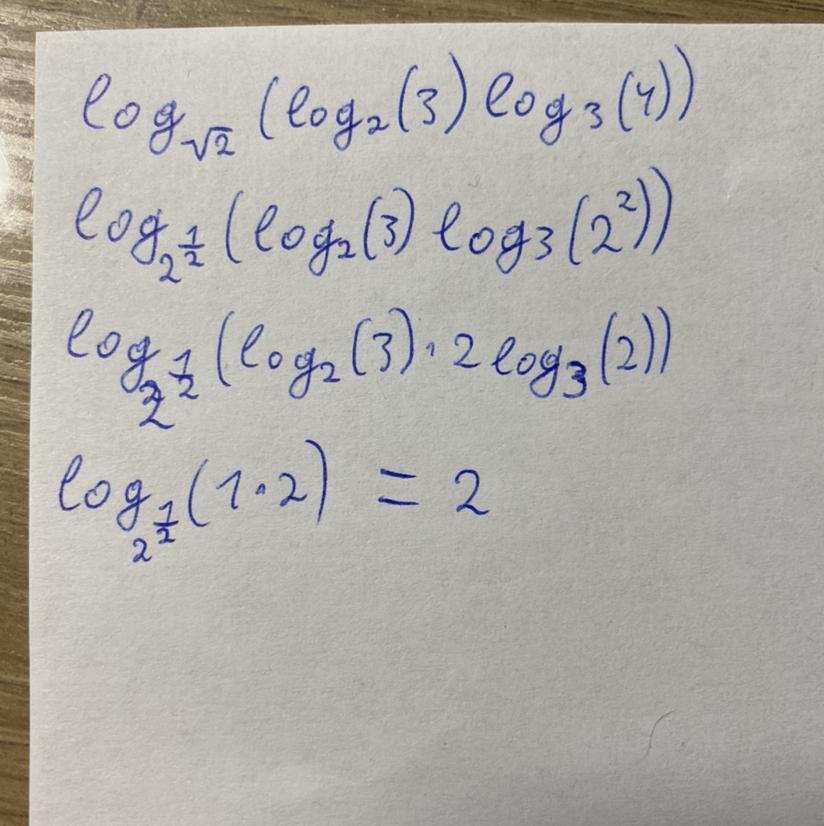 log_√2 (log₂(3) log₃(4))
log_2^½ (log₂(3) log3(2²))
log_2^½ (log₂(3)·2log₃(2))
log_2^½ (1·2) = 2